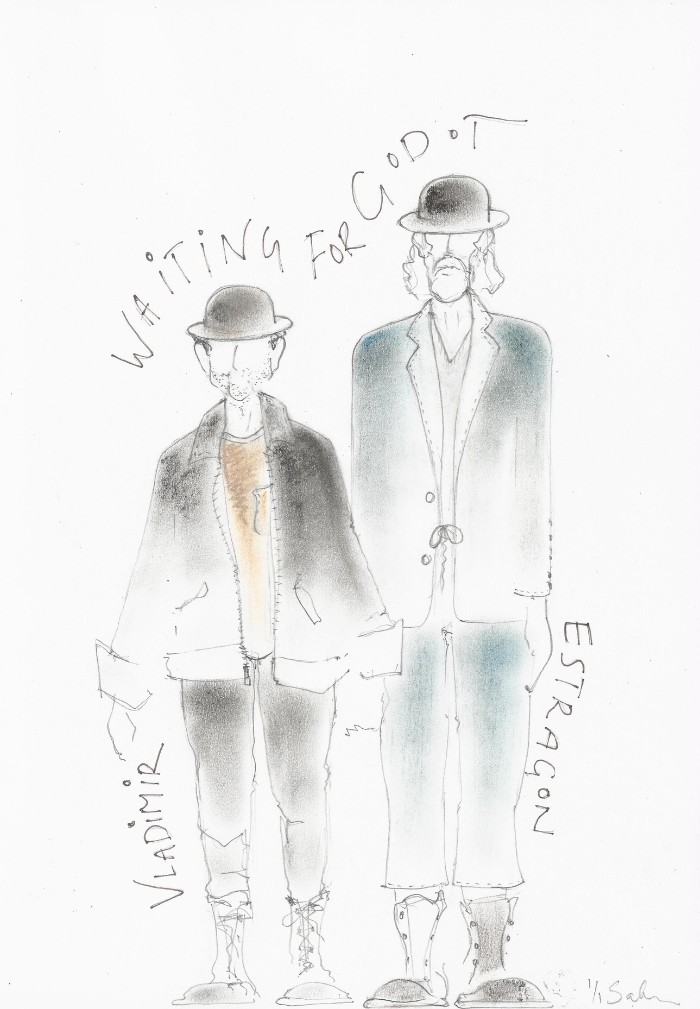 WAiTiNG FOR GODOT
VLADiMiR
ESTRAGON
1/1